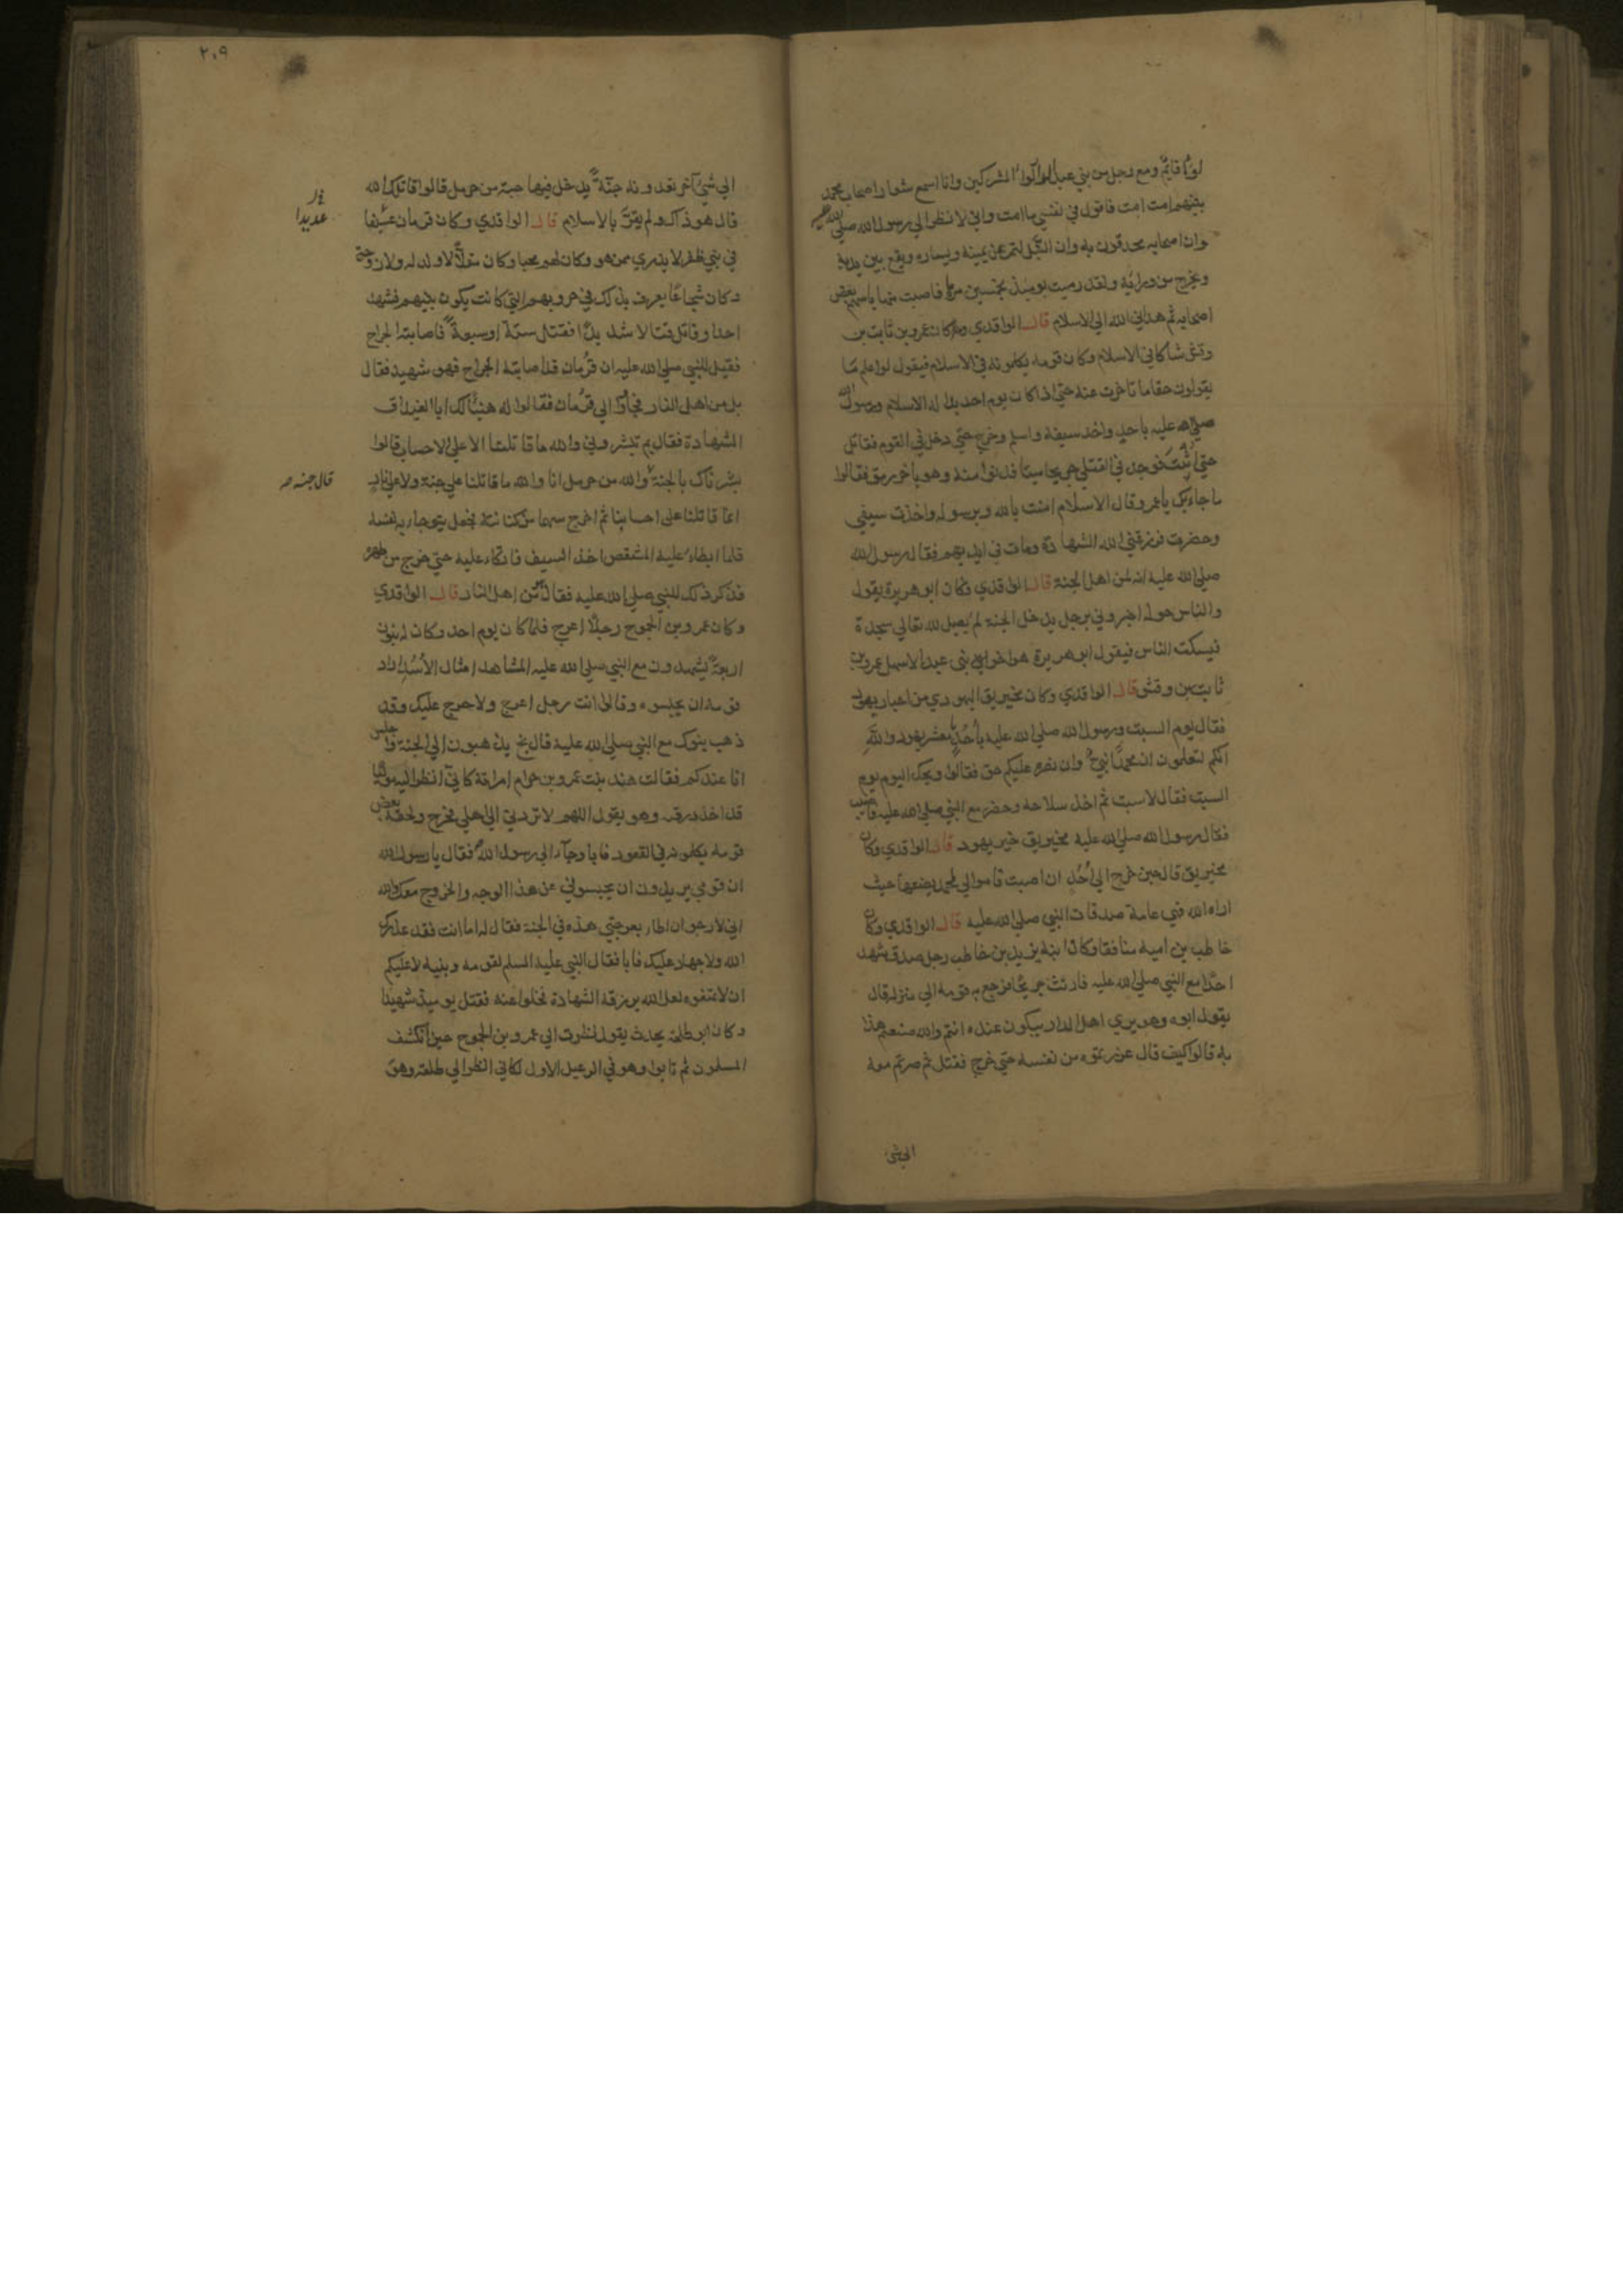 لوآ قايم ومع رجل من بني عبد الدار لوآ المشركين وانا اسمع شعار اصحاب محمد
بينهم امت امت فاقول في نفسي ما امت واني لانظر الي رسول الله صلي الله عليه
وان اصحابه محدقون به وان النبل لتمر عن يمينه ويساره ويقع بين يديه
ويخرج من ورائه ولقد رميت يوميذ بخمسين مرماة فاصبت منها باسهم بعض
اصحابه ثم هداني الله الي الاسلام قال الواقدي وكان عمرو بن ثابت بن
وقش شاكا في الاسلام وكان قومه يكلمونه في الاسلام فيقول لو اعلم ما
يقولون حقا ما تاخرت عنه حتي اذا كان يوم احد بدا له الاسلام ورسول الله
صلي الله عليه باحد واخذ سيفه واسلم وخرج حتي دخل في القوم فقاتل
حتي اثبت فوجد في القتلي جريحا ميتا فدنوا منه وهو باخر رمق فقالوا
ما جاء بك يا عمرو قال الاسلام امنت بالله وبرسوله واخذت سيفي
وحضرت فرزقني الله الشهادة ومات في ايديهم فقال رسول الله
صلي الله عليه انه لمن اهل الجنة قال الواقدي وكان ابو هريرة يقول
والناس حوله اخبروني برجل يدخل الجنة لم يصل لله تعالي سجدة
فيسكت الناس فيقول ابو هريرة هو اخو بني عبد الاشهل عمرو بن
ثابت بن وقش قال الواقدي وكان مخيريق اليهودي من احبار يهود
فقال يوم السبت ورسول الله صلي الله عليه باحد يا معشر يهود والله
انكم لتعلمون ان محمدا نبي وان نصره عليكم حق فقالوا ويحك اليوم يوم
السبت فقال لا سبت ثم اخذ سلاحه وحضر مع النبي صلي الله عليه فاصيب
فقال رسول الله صلي الله عليه مخيريق خير يهود قال الواقدي وكان
مخيريق قال حين خرج الي احد ان اصبت فاموالي لمحمد يضعها حيث
اراه الله فهي عامة صدقات النبي صلي الله عليه قال الواقدي وكان
حاطب بن امية منافقا وكان ابنه يزيد بن حاطب رجل صدق شهد
احدا مع النبي صلي الله عليه فارتث جريحا فرجع به قومه الي منزله قال
يقول ابوه وهو يري اهل الدار يبكون عنده انتم والله صنعتم هذا
به قالوا كيف قال غررتموه من نفسه حتي خرج فقتل ثم صرتم معه
الي شيء آخر تعدونه جنة يدخل فيها حبة من حرمل قالوا قاتلك الله
قال هو ذاك ولم يقر بالاسلام قال الواقدي وكان قزمان عسيفا
في بني ظفر لا يدري ممن هو وكان لهم محبا وكان مقلا لا ولد له ولا زوجة
وكان شجاعا يعرف بذلك في حروبهم التي كانت يكون بينهم فشهد
احدا وقاتل قتالا شديدا فقتل ستة او سبعة فاصابته الجراح
فقيل للنبي صلي الله عليه ان قزمان قد اصابته الجراح فهو شهيد فقال
بل من اهل النار فجاؤا الي قزمان فقالوا له هنيئا لك ابا الغيداق
الشهادة فقال بم تبشروني والله ما قاتلنا الا علي الاحساب قالوا
بشرناك بالجنة والله من حرمل انا والله ما قاتلنا علي جنة ولا علي نار
انما قاتلنا علي احسابنا ثم اخرج سهما من كنانته فجعل يتوجا به نفسه
فلما ابطا عليه المشقص اخذ السيف فاتكا عليه حتي خرج من ظهره
فذكر ذلك للنبي صلي الله عليه فقال من اهل النار قال الواقدي
وكان عمرو بن الجموح رجلا اعرج فلما كان يوم احد وكان له بنون
اربعة يشهدون مع النبي صلي الله عليه المشاهد امثال الاسد اراد
قومه ان يحبسوه وقالوا انت رجل اعرج ولا حرج عليك وقد
ذهب بنوك مع النبي صلي الله عليه قال بخ يذهبون الي الجنة واجلس
انا عندكم فقالت هند بنت عمرو بن حرام امراته كاني انظر اليه موليا
قد اخذ درقته وهو يقول اللهم لا تردني الي اهلي فخرج ولحقه بعض
قومه يكلمونه في القعود فابا وجاء الي رسول الله فقال يا رسول الله
ان قومي يريدون ان يحبسوني عن هذا الوجه والخروج معك والله
اني لارجو ان اطا بعرجتي هذه في الجنة فقال له اما انت فقد عذرك
الله ولا جهاد عليك فابا فقال النبي عليه السلم لقومه وبنيه لا عليكم
ان لا تمنعوه لعل الله يرزقه الشهادة فخلوا عنه فقتل يوميذ شهيدا
وكان ابو طلحة يحدث يقول نظرت الي عمرو بن الجموح حين انكشف
المسلمون ثم تابوا وهو في الرعيل الاول لكاني انظر الي طلعه وهو
٢٠٩
عديدا
قال جنه